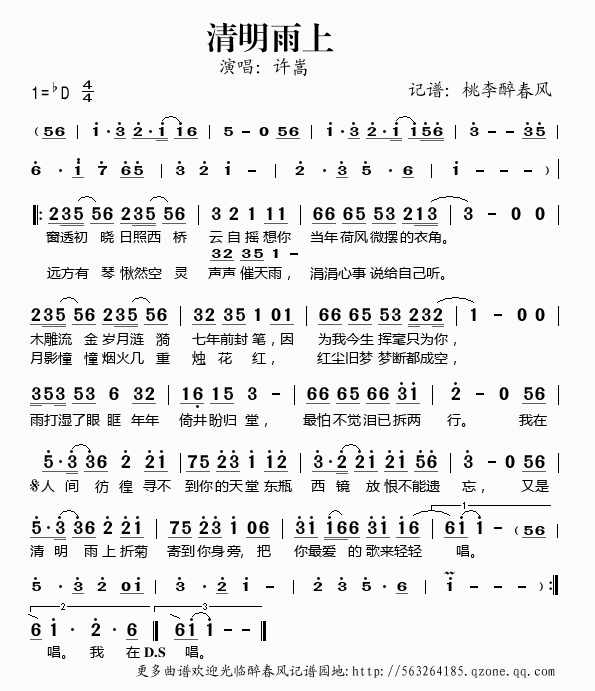 清明雨上
演唱：许嵩
1=♭D 4/4 记谱：桃李醉春风
（56 | i·3 2·i i16 | 5 - 0 56 | i·3 2·i i56 | 3 - - 35 |
6·i 7 65 | 3 2 i - | 2·3 5·6 | i - - - ）|
‖: 235 56 235 56 | 3 2 1 11 | 66 65 53 213 | 3 - 0 0 |
窗透初 晓 日照西 桥 云 自 摇 想你 当年 荷风 微摆 的衣角。
32 35 1 -
远方有 琴 愀然空 灵 声声 催天雨， 涓涓心事 说给自己 听。
235 56 235 56 | 32 35 1 01 | 66 65 53 232 | 1 - 0 0 |
木雕流 金 岁月涟 漪 七年前封 笔，因 为我今生 挥毫只为你，
月影憧 憧 烟火几 重 烛 花 红， 红尘旧梦 梦断都成空，
353 53 6 32 | 16 15 3 - | 66 65 66 31 | 2 - 0 56 |
雨打湿了眼 眶 年年 倚井盼归 堂， 最怕不觉泪已拆两 行。 我在
5·3 36 2 21 | 75 23 1 12 | 3·2 21 21 56 | 3 - 0 56 |
𝄋人 间 彷 徨 寻不 到你的天堂 东瓶 西 镜 放 恨不能遗 忘， 又是
5·3 36 2 21 | 75 23 1 06 | 31 166 31 16 | 1 61 1 - （56 |
清 明 雨上折菊 寄到你身旁，把 你最爱 的 歌来轻轻 唱。
5·3 2 0i | 3·2 i - | 2 3 5·6 | i - - ）:‖
2 6 1·2·6 ‖ 3 61 1 - - ‖
唱。 我 在 D.S 唱。
更多曲谱欢迎光临醉春风记谱园地:http://563264185.qzone.qq.com/